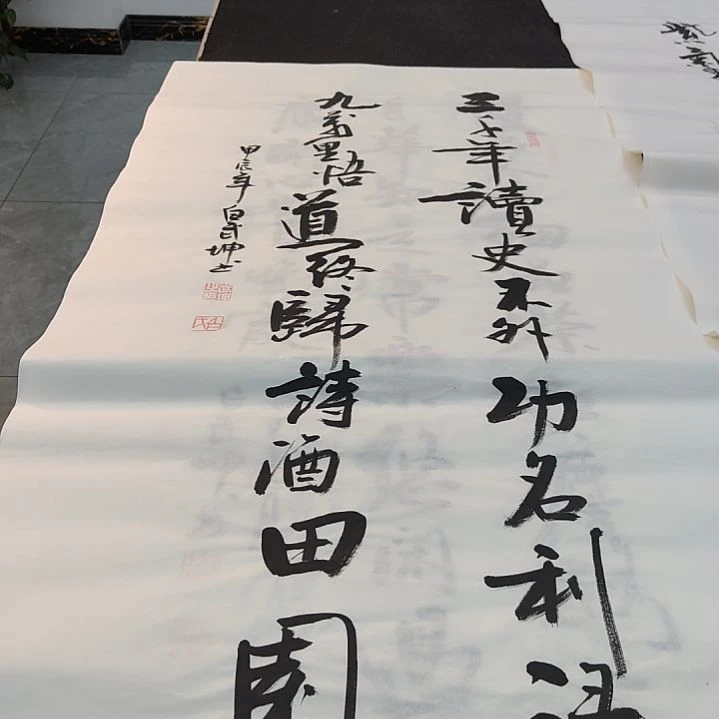 三千年讀史不外功名利
九萬里悟道終歸詩酒田園
甲辰年 白氏坤书